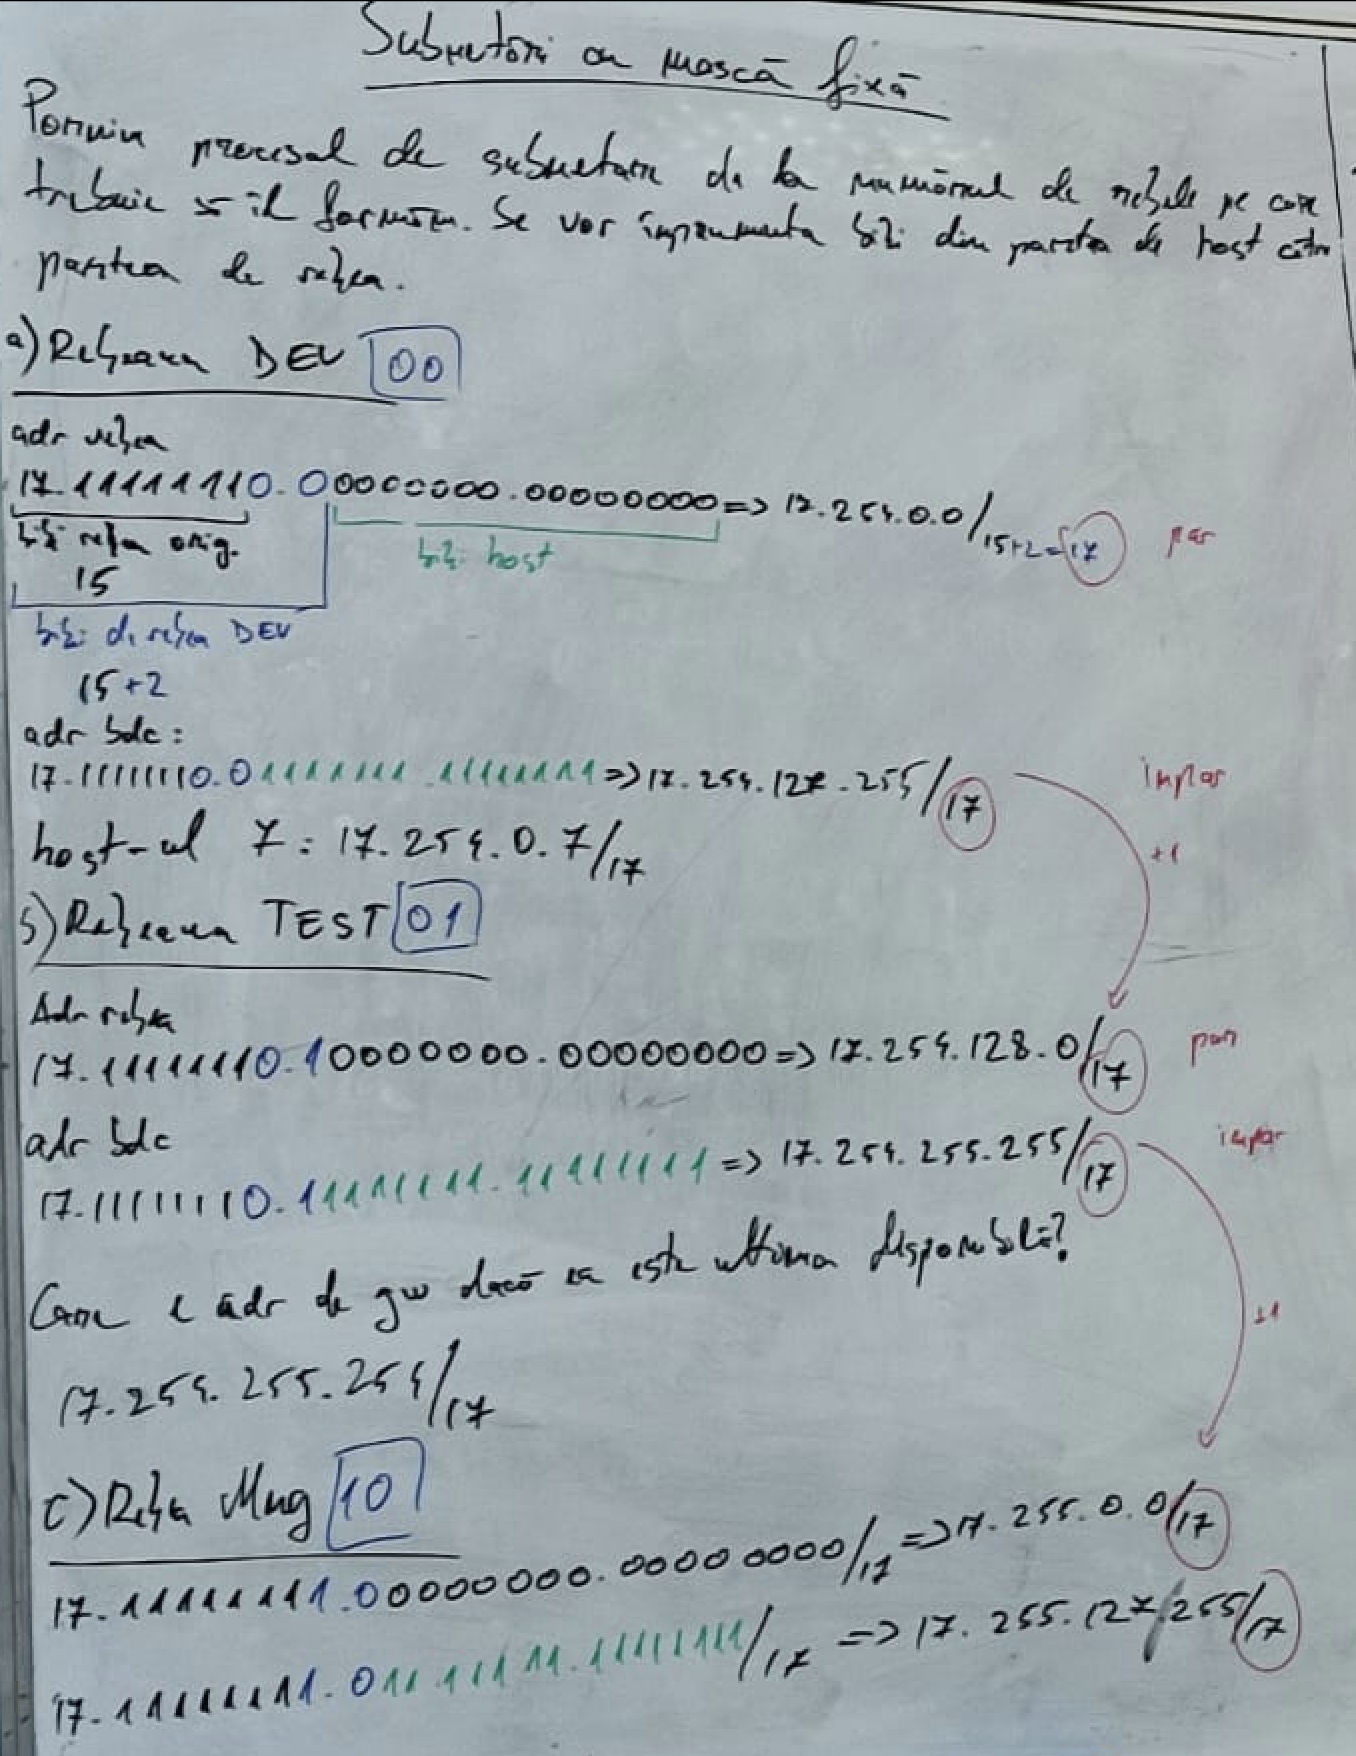 Subrețări cu mască fixă
Pornim procesul de subnetare de la numărul de rețele pe care
trebuie să îl formăm. Se vor împrumuta biți din partea de host către
partea de rețea.
a) Rețeaua DEV 00
adr rețea
17.11111110.00000000.00000000 => 17.254.0.0/15+2=17 par
biți rețea orig. biți host
15
biți de rețea DEV
15+2
adr bdc:
17.11111110.01111111.11111111 => 17.254.127.255/17 impar
+1
host-ul 7: 17.254.0.7/17
b) Rețeaua TEST 01
Adr rețea
17.11111110.10000000.00000000 => 17.254.128.0/17 par
adr bdc
17.11111110.11111111.11111111 => 17.254.255.255/17 impar
Care e adr de gw dacă ea este ultima disponibilă?
+1
17.254.255.254/17
c) Rețea Mng 10
17.11111111.00000000.00000000/17 => 17.255.0.0/17
17.11111111.01111111.11111111/17 => 17.255.127.255/17